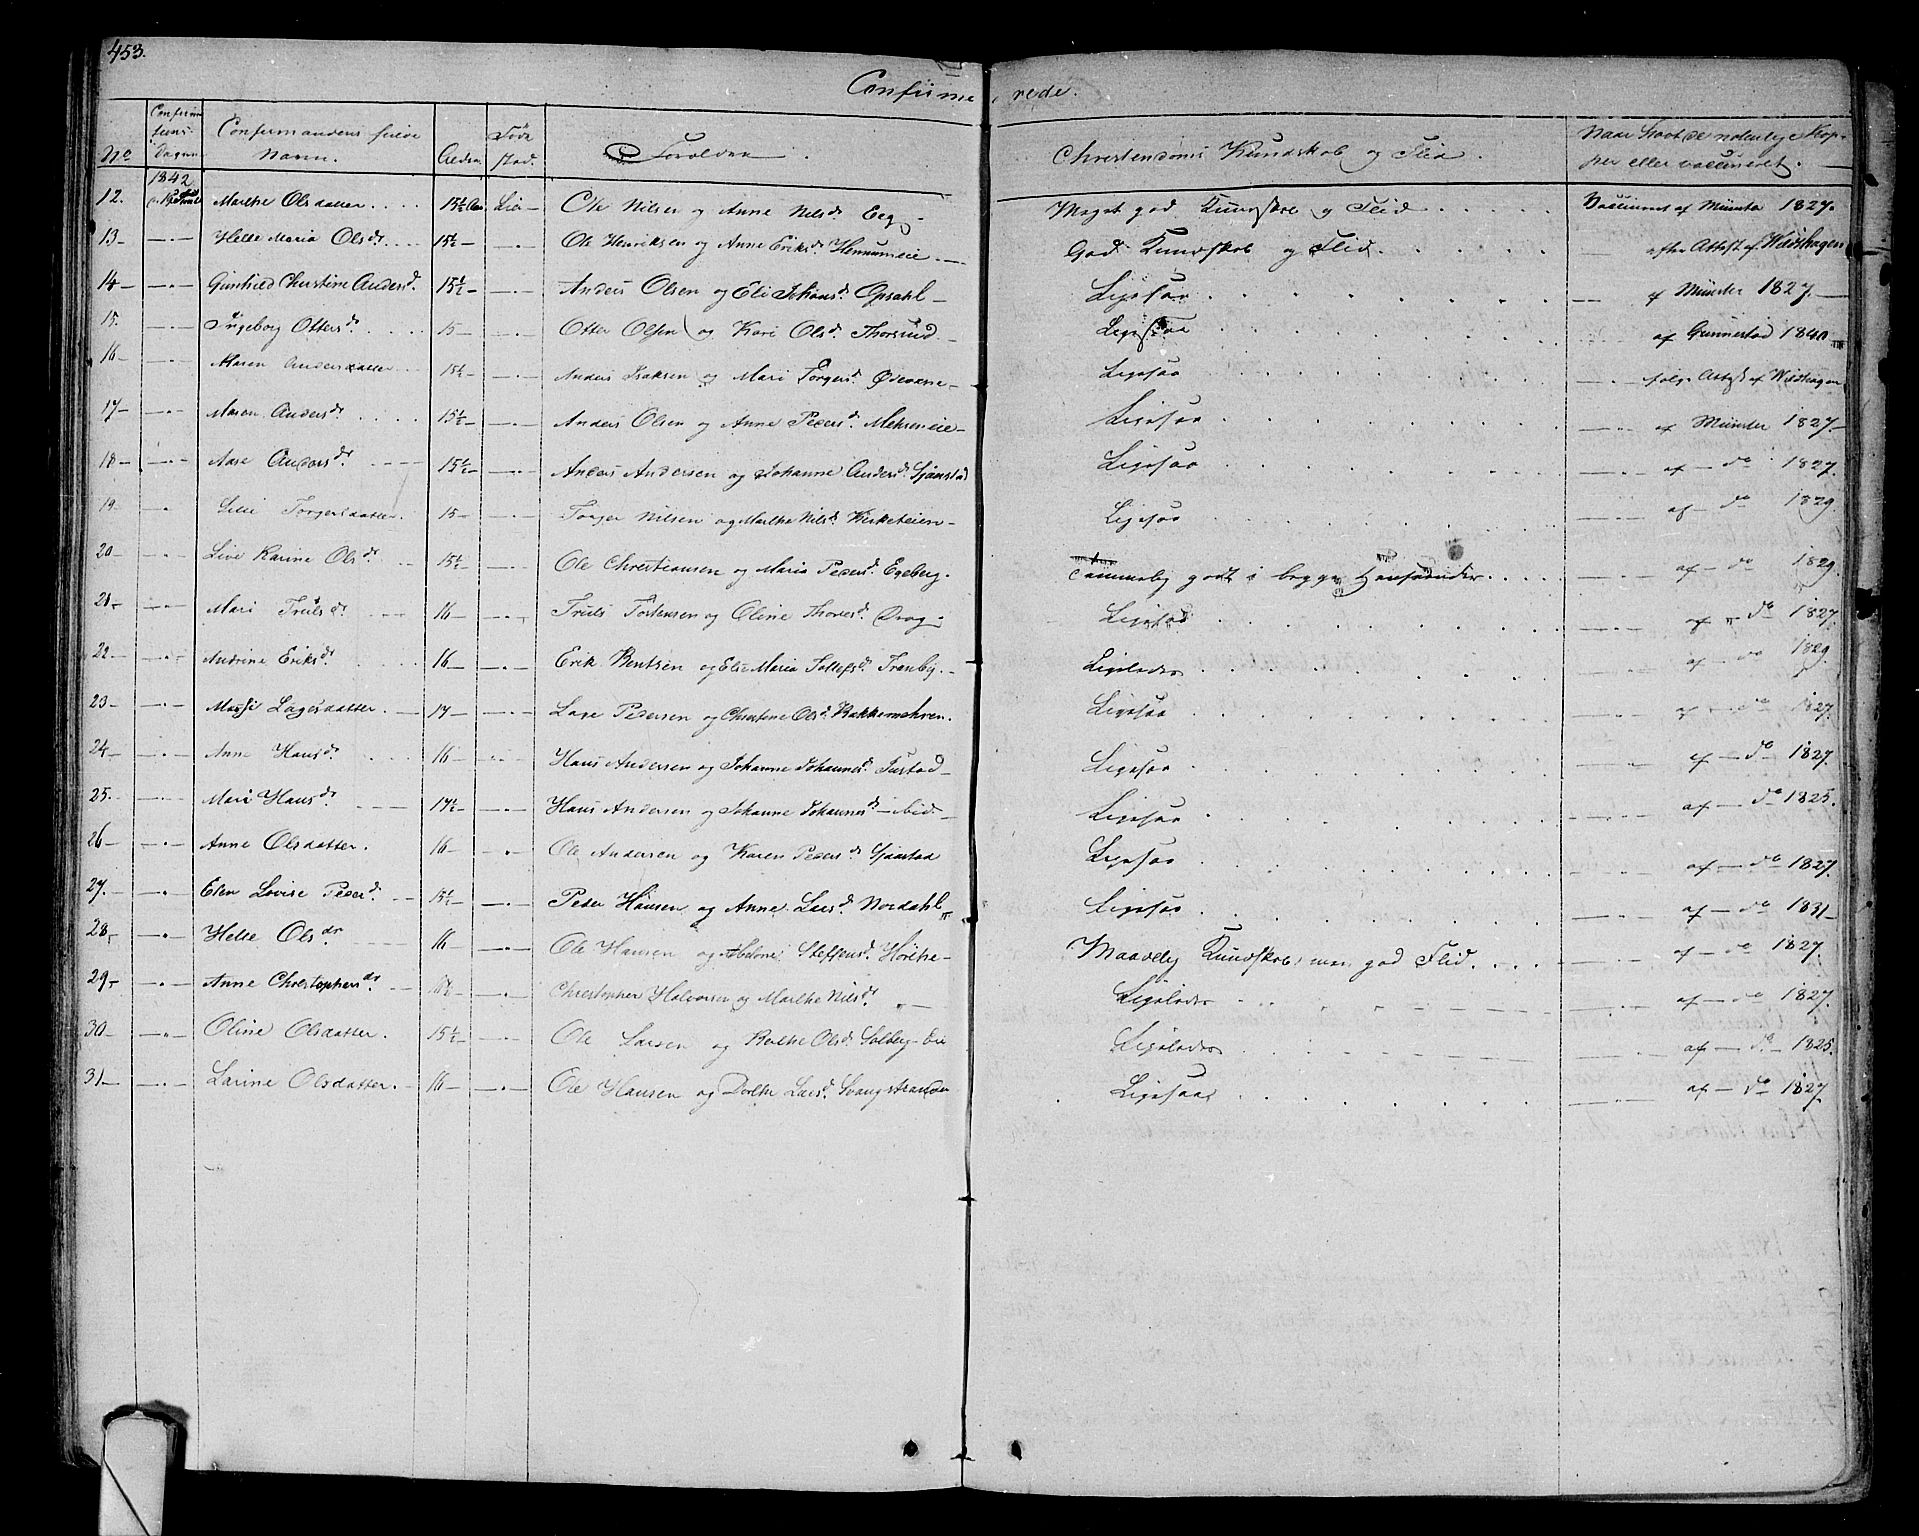 453.
Confirme rede.
No
Confirmandens fulde Navn.
Alder
Føde stad.
Foreldre
Christendoms Kundskab og Flid.
Naar havt de naturlige Kopper eller vaccineret.
1842
12. Marthe Olsdatter 15½ Aar Lier Ole Nilsen og Anne Nilsd Eeg Meget god Kundskab og Flid Vaccineret af Münster 1827.
13 Helle Maria Olsdr 15½ Ole Henriksen og Anne Eriksd. Hennumeie God Kundskab og Flid efter Attest af Weidhagen
14 Gunhild Christine Andersd. 15½ Anders Olsen og Eli Johansd. Opsahl Ligesaa af Münster 1827.
15. Ingeborg Ottersdr 15 Otter Olsen og Kari Olsd. Thorsrud Ligesaa af Gunnestad 1840
16 Maren Andersdatter 15½ Anders Isaksen og Mari Torgersd. Ligesaa følge Attest af Weidhagen
17 Maren Andersdr. 15½ Anders Olsen og Anne Pedersd. Mehreneie Ligesaa af Münster 1827
18 Anders dr. 15½ Anders Andersen og Johanne Andersd. Sjaastad Ligesaa af do 1827.
19. Torgersdatter 15 Torger Nilsen og Marthe Nilsd. Kirketeien Ligesaa af do 1829.
20 Live Karine Olsdr 15½ Ole Christiansen og Maria Pedersd. Egeberg. Temmelig godt i begge Henseender af do 1829.
21 Mari Trulsdr. 16 Truls Torstensen og Oline Thoresd. Drog Ligesaa af do 1827.
22. Andrine Eriksdr. 16 Erik Bentsen og Eli Maria Tollefsd. Tranby. Ligeledes af do 1829.
23 Lagesdatter 17 Lage Pedersen og Christine Olsd. Bakkemehren. Ligesaa af do 1827.
24 Anne Hansdr 16 Hans Andersen og Johanne Johannesd. Justad Ligesaa af do 1827.
25. Mari Hansdr. 17½ Hans Andersen og Johanne Johannesd ibid Ligesaa af do 1825.
26 Anne Olsdatter. 16 Ole Andersen og Karen Pedersd. Sjaastad Ligesaa af do 1827.
27. Elen Lovise Pedersd. 15½ Peder Hansen og Anne Larsd. Nordahl Ligesaa af do 1831
28. Helle Olsdr 16 Ole Hansen og Abelone Steffensd. Hørthe Maadelig Kundskab, men god Flid. af do 1827.
29 Anne Christophersdr. Christopher Halvorsen og Marthe Nilsd. Ligeledes af do 1827.
30 Oline Olsdatter. 15½ Ole Larsen og Berthe Olsd. Solberg eie Ligeledes af do 1825.
31 Larine Olsdatter. 16 Ole Hansen og Dorthe Larsd. Svangstranden Ligesaa af do 1827.